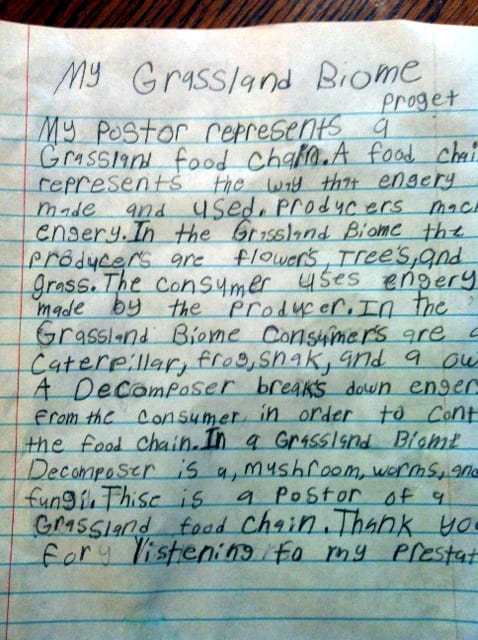 My Grassland Biome
proget
My Postor represents a
Grassland food chain. A food chai
represents the way that engery
made and used. Producers mac
engery. In the Grassland Biome the
producers are flowers, Tree's, and
grass. The consymer uses engery
made by the Producer. In the
Grassland Biome Consymer's are a
Caterpillar, frog, snak, and a ow
A Decomposer breaks down enger
from the consumer in order to cont
the food chain. In a Grassland Biome
Decomposer is a, myshroom, worms, and
fungii. Thise is a Postor of a
Grassland food chain. Thank yo
for listening to my Prestat